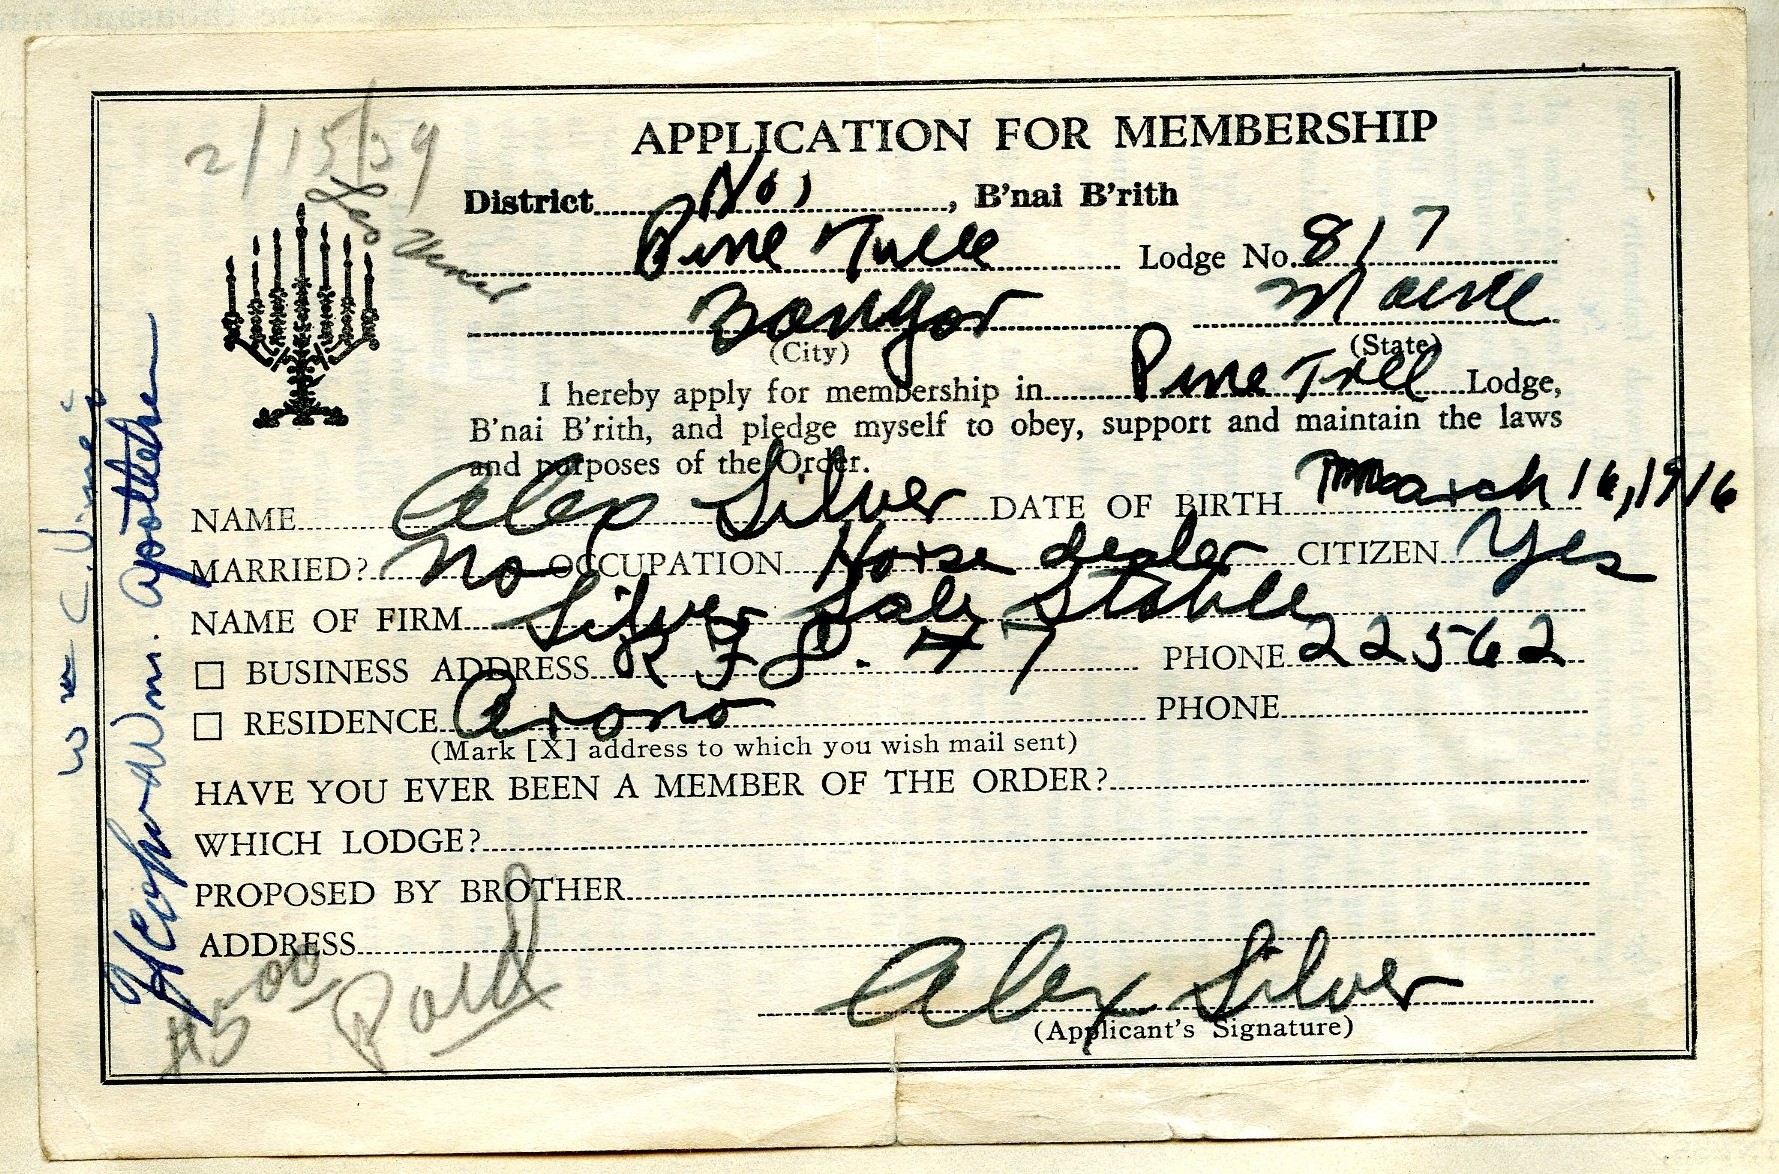 2/15/59
APPLICATION FOR MEMBERSHIP
District No 1, B'nai B'rith
Pine Tree Lodge No. 817
Bangor Maine
(City) (State)
I hereby apply for membership in Pine Tree Lodge,
B'nai B'rith, and pledge myself to obey, support and maintain the laws
and purposes of the Order.
NAME Alex Silver DATE OF BIRTH March 16, 1916
MARRIED? No OCCUPATION Horse dealer CITIZEN Yes
NAME OF FIRM Silver Sale Stable
☐ BUSINESS ADDRESS R F D. #7 PHONE 22562
☐ RESIDENCE Orono PHONE
(Mark [X] address to which you wish mail sent)
HAVE YOU EVER BEEN A MEMBER OF THE ORDER?
WHICH LODGE?
PROPOSED BY BROTHER
ADDRESS
Alex Silver
(Applicant's Signature)
$5.00 Paid